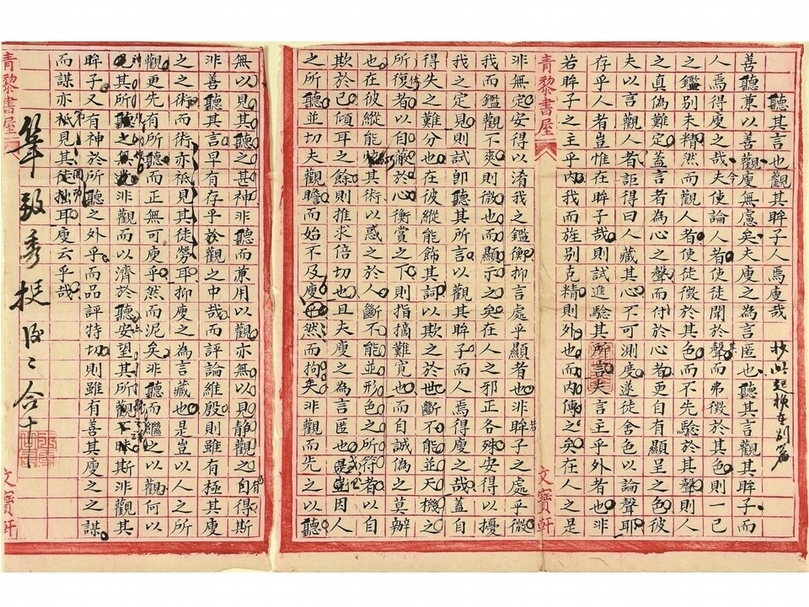 聽其言也觀其眸子人焉廋哉
善聽兼以善觀廋無處矣夫廋之為言匿也聽其言觀其眸子而
人焉得廋之哉今夫使論人者使徒聞於聲而弗徵於其色則一己
之鑑別未精然而觀人者使徒徵於其色而不先驗於其聲則人
之真偽難定蓋言者為心之聲而付於心者更自有顯呈之色彼
夫以言觀人者詎得曰人藏其心不可測度遂徒舍色以論聲耶
存乎人者豈惟在眸子哉則試進驗其所言夫言主乎外者也非
若眸子之主乎內我而旌別克精則外也而內傳之矣在人之是
非無定安得以淆我之鑑衡抑言處乎顯者也非若眸子之處乎微
我而鑑觀不爽則微也而顯示之矣在人之邪正各殊安得以擾
我之定見則試即聽其所言以觀其眸子而人焉得廋之哉蓋自
得失之難分也在彼縱能飾其詞以欺之於世斷不能並天機之
所復者以自飾於心衡賞之下則指摘難寬也而自誠偽之莫辦
也在彼縱能 其術以惑之於人斷不能並形色之所符者以自
欺於己傾耳之餘則推求倍切也且夫廋之為言匿也 因人
之所聽並切夫觀瞻而始不及廋 然而拘矣非觀而先之以聽
無以見其聽之甚神非聽而兼用以觀亦無以見靜觀之自得斯
非善聽其言早有存乎於觀之中哉而評論維殷則雖有極其廋
之之術而術亦祇見其徒勞耳抑廋之為言藏也是豈以人之所
觀更先有所聽而正無可廋乎然而泥矣非聽而繼之以觀何以
其所聽之無 非觀而以濟於聽安望其所觀 斯非觀其
眸子又有神於所聽之外乎而品評特切則雖有善其廋之之謀
而謀亦祇見其徒拙耳廋云乎哉
筆致秀挺
合十
青黎書屋
文寶軒
青黎書屋
文寶軒